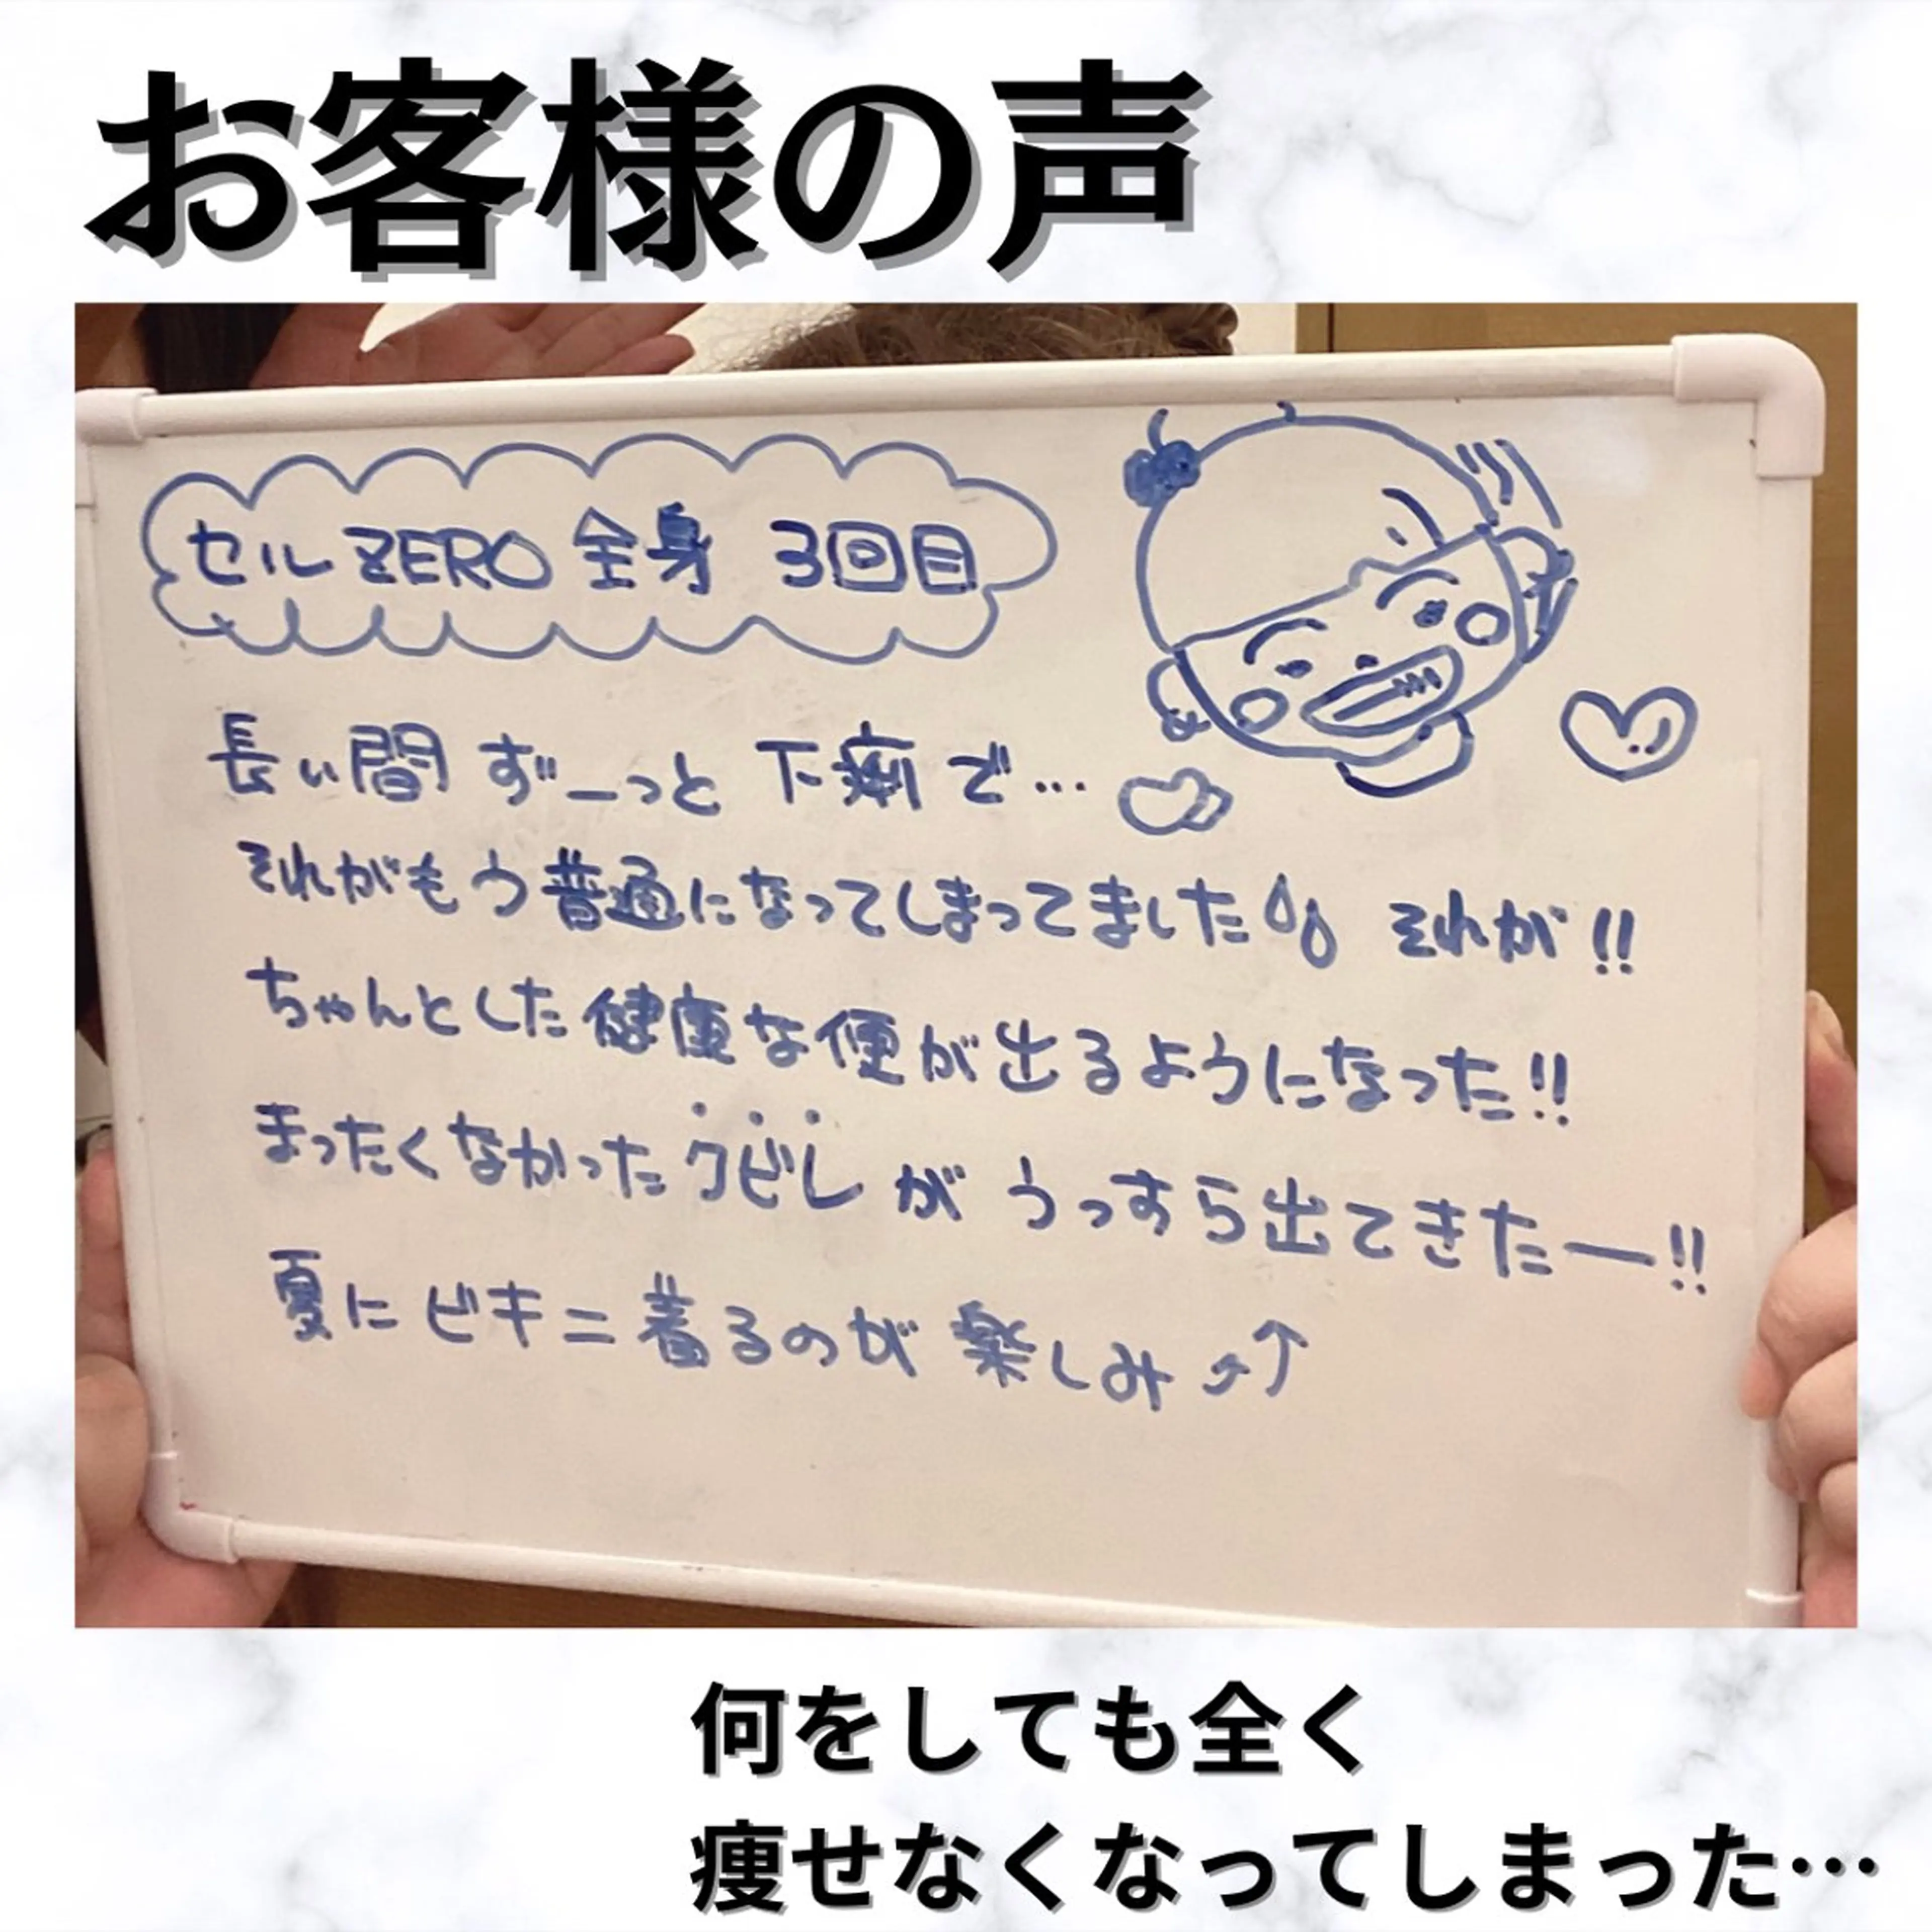 お客様の声
セルZERO 全身 3回目
長い間 ずーっと 下痢で…
それがもう普通になってしまってました それが!!
ちゃんとした健康な便が出るようになった!!
まったくなかったクビレが うっすら出てきたー!!
夏にビキニ着るのが楽しみ♪↑
何をしても全く
痩せなくなってしまった…